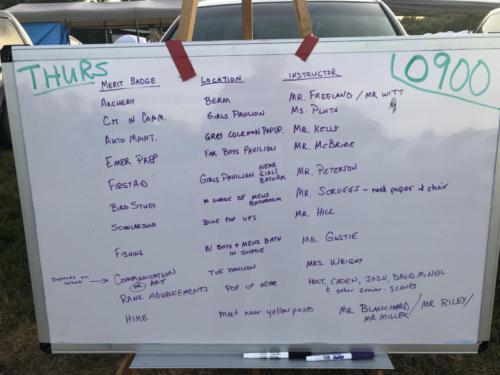 THURS 0900
MERIT BADGE LOCATION INSTRUCTOR
ARCHERY BERM MR. FREELAND / MR WITT
CIT IN COMM. GIRLS PAVILION MS. PLUTA
AUTO MAINT. GREY COLEMAN POPUP. MR. KELLY
EMER PREP FAR BOYS PAVILION MR. MCBRIDE
FIRST AID GIRLS PAVILION NEAR GIRLS BATHRM MR. PETERSON
BIRD STUDY IN SHADE BY MENS BATHROOM MR. SCRUGGS - need paper & chair
SCHOLARSHIP BLUE POP UPS MR. HILL
FISHING B/ BOYS & MENS BATH IN SHADE MR.
Depends on → COMMUNICATION OR ART PAVILION MRS. WRIGHT
RANK ADVANCEMENTS POP UP NEAR HOLT, CADEN, JOSH, DAVID MCNEIL & other senior scouts
HIKE Meet near yellow posts MR BLANCHARD / MR RILEY / MR MILLER